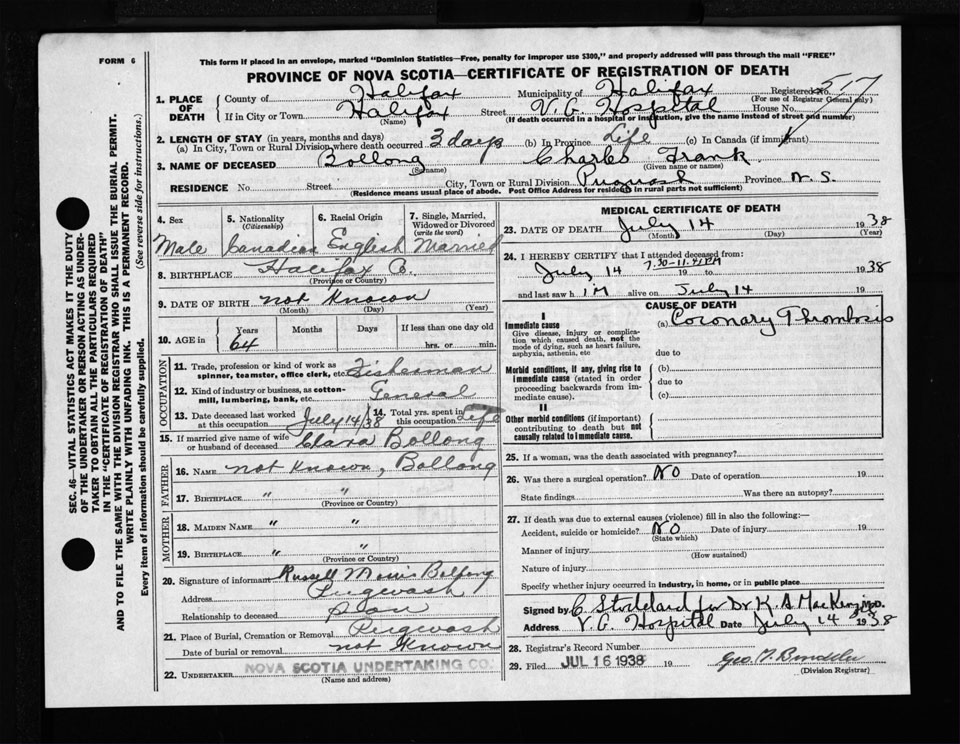 FORM 6
This form if placed in an envelope, marked "Dominion Statistics—Free, penalty for improper use $300," and properly addressed will pass through the mail "FREE"
PROVINCE OF NOVA SCOTIA—CERTIFICATE OF REGISTRATION OF DEATH
1. PLACE OF DEATH
County of Halifax Municipality of Halifax Registered No. 517
(For use of Registrar General only)
If in City or Town Halifax Street V.G. Hospital House No.
(Name) (If death occurred in a hospital or institution, give the name instead of street and number)
2. LENGTH OF STAY (in years, months and days)
(a) In City, Town or Rural Division where death occurred 3 days (b) In Province Life (c) In Canada (if immigrant)
3. NAME OF DECEASED Bollong Charles Frank
(Surname) (Given name or names)
RESIDENCE No. Street City, Town or Rural Division Pugwash Province N.S.
(Residence means usual place of abode. Post Office Address for residents in rural parts not sufficient)
4. Sex Male
5. Nationality (Citizenship) Canadian
6. Racial Origin English
7. Single, Married, Widowed or Divorced (write the word) Married
8. BIRTHPLACE Halifax Co.
(Province or County)
9. DATE OF BIRTH not known
(Month) (Day) (Year)
10. AGE in Years 64 Months Days If less than one day old hrs. or min.
OCCUPATION
11. Trade, profession or kind of work as spinner, teamster, office clerk, etc. Fisherman
12. Kind of industry or business, as cotton-mill, lumbering, bank, etc. General
13. Date deceased last worked at this occupation July 14/38
14. Total yrs. spent in this occupation Life
15. If married give name of wife or husband of deceased Clara Bollong
FATHER
16. NAME not known, Bollong
17. BIRTHPLACE " "
(Province or County)
MOTHER
18. MAIDEN NAME " "
19. BIRTHPLACE " "
(Province or County)
20. Signature of informant Russell Bollong
Address Pugwash
Relationship to deceased Son
21. Place of Burial, Cremation or Removal Pugwash
Date of burial or removal not known
22. UNDERTAKER NOVA SCOTIA UNDERTAKING CO.
(Name and address)
MEDICAL CERTIFICATE OF DEATH
23. DATE OF DEATH July 14 1938
(Month) (Day) (Year)
24. I HEREBY CERTIFY that I attended deceased from:
July 14 7.30-11.41 PM 19 to 1938
and last saw h im alive on July 14 19
CAUSE OF DEATH
I
Immediate cause
Give disease, injury or complication which caused death, not the mode of dying, such as heart failure, asphyxia, asthenia, etc
(a) Coronary Thrombosis
due to
Morbid conditions, if any, giving rise to immediate cause (stated in order proceeding backwards from immediate cause).
(b)
due to
(c)
II
Other morbid conditions (if important) contributing to death but not causally related to immediate cause.
25. If a woman, was the death associated with pregnancy?
26. Was there a surgical operation? No Date of operation 19
State findings Was there an autopsy?
27. If death was due to external causes (violence) fill in also the following:—
Accident, suicide or homicide? No Date of injury 19
(State which)
Manner of injury
(How sustained)
Nature of injury
Specify whether injury occurred in industry, in home, or in public place
Signed by C. Stoddard for Dr K. A. MacKenzie M.D.
Address V.G. Hospital Date July 14 1938
28. Registrar's Record Number
29. Filed JUL 16 1938 19
(Division Registrar)
SEC. 46—VITAL STATISTICS ACT MAKES IT THE DUTY
OF THE UNDERTAKER OR PERSON ACTING AS UNDER-
TAKER TO OBTAIN ALL THE PARTICULARS REQUIRED
IN THE "CERTIFICATE OF REGISTRATION OF DEATH"
AND TO FILE THE SAME WITH THE DIVISION REGISTRAR WHO SHALL ISSUE THE BURIAL PERMIT.
WRITE PLAINLY WITH UNFADING INK. THIS IS A PERMANENT RECORD.
Every item of information should be carefully supplied. (See reverse side for instructions.)